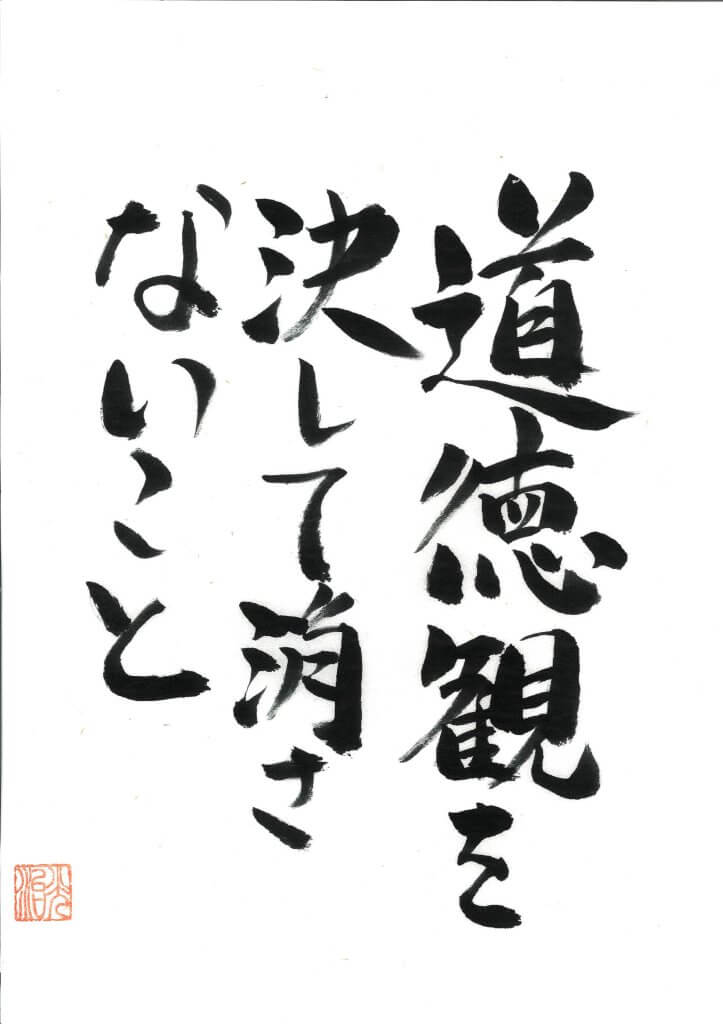 道徳観を
決して消さ
ないこと